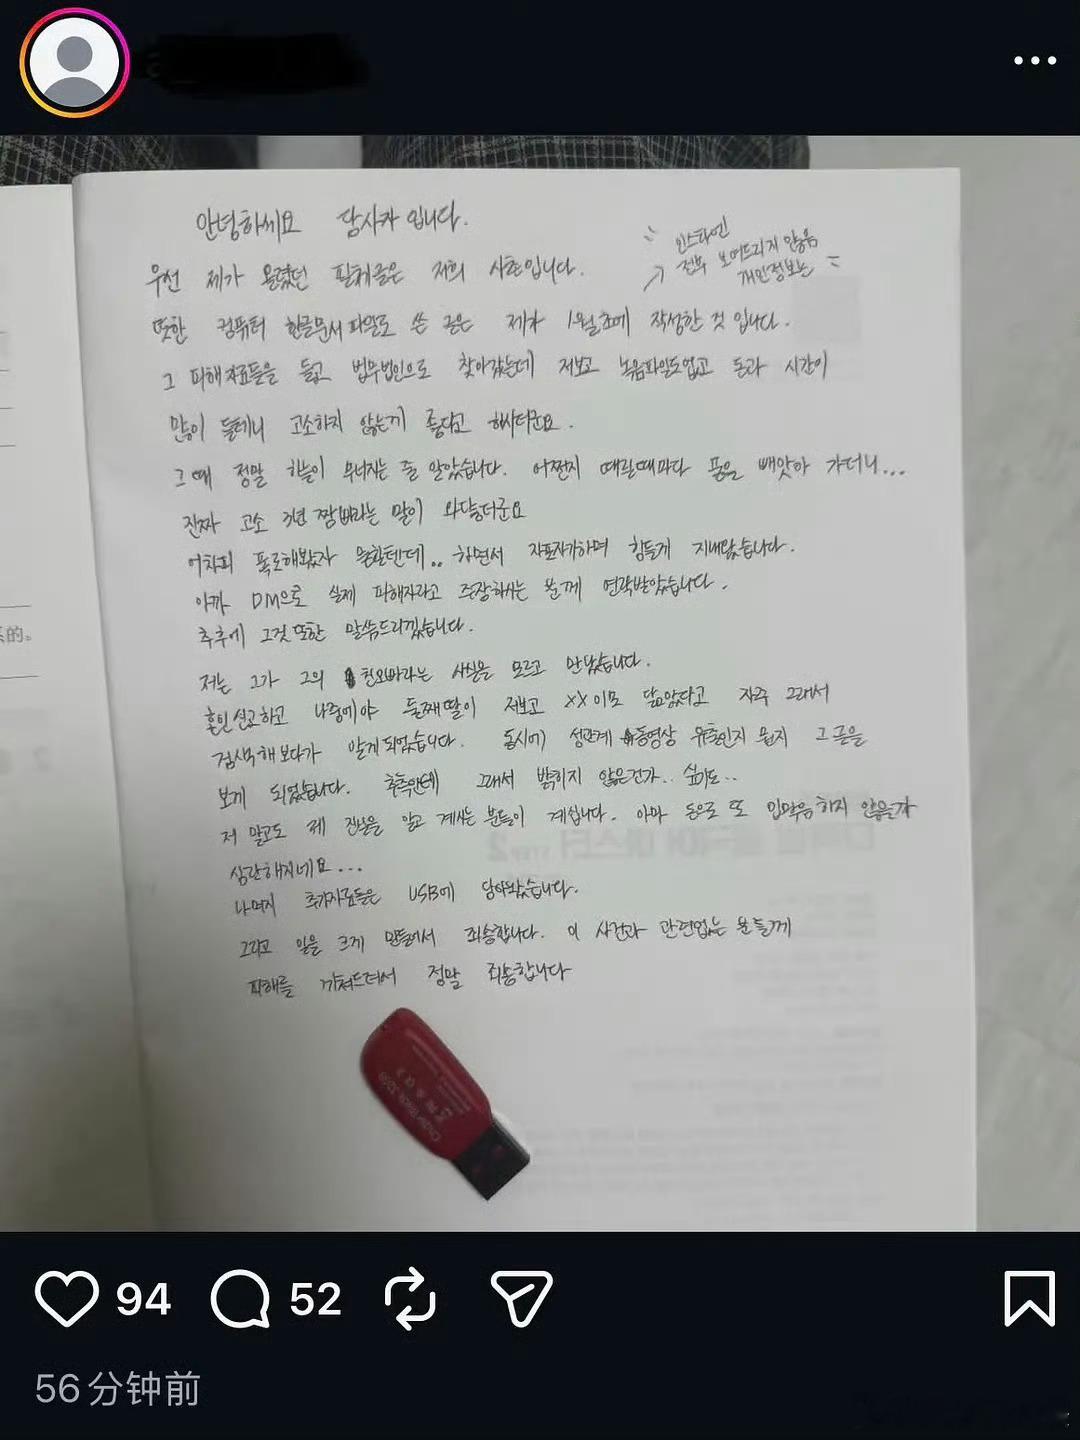 안녕하세요 당사자 입니다.
인스타엔
전부 보여드리지 않음
개인정보는
우선 제가 올렸던 필체글은 저희 사촌입니다.
또한 컴퓨터 한글문서파일로 쓴 글은 제가 1월초에 작성한 것 입니다.
그 피해자료들을 들고 법무법인으로 찾아갔는데 저보고 녹음파일도없고 돈과 시간이
많이 들테니 고소하지 않는게 좋다고 하시더군요.
그때 정말 하늘이 무너지는 줄 알았습니다. 어쩐지 때릴때마다 폰을 빼앗아 가더니...
진짜 고소 3년 짬빠라는 말이 와닿더군요
어차피 폭로해봤자 못할텐데.. 하면서 자포자기하며 힘들게 지내왔습니다.
아까 DM으로 실제 피해자라고 주장하시는 분께 연락받았습니다.
추후에 그것또한 말씀드리겠습니다.
저는 그가 그의 친오빠라는 사실을 모르고 만났습니다.
혼인신고하고 나중에야 둘째딸이 저보고 XX이모 닮았다고 자주 그래서
검색해보다가 알게되었습니다. 동시에 성관계 동영상 유출인지 뭔지 그 글을
보게 되었습니다. 추측인데 그래서 밝히지 않은건가.. 싶기도..
저 말고도 제 진실을 알고 계시는 분들이 계십니다. 아마 돈으로 또 입막음하지 않을까
심란해지네요...
나머지 추가자료들은 USB에 담아왔습니다.
그리고 일을 크게 만들어서 죄송합니다. 이 사건과 관련없는 분들께
피해를 끼쳐드려서 정말 죄송합니다
94
52
56分钟前